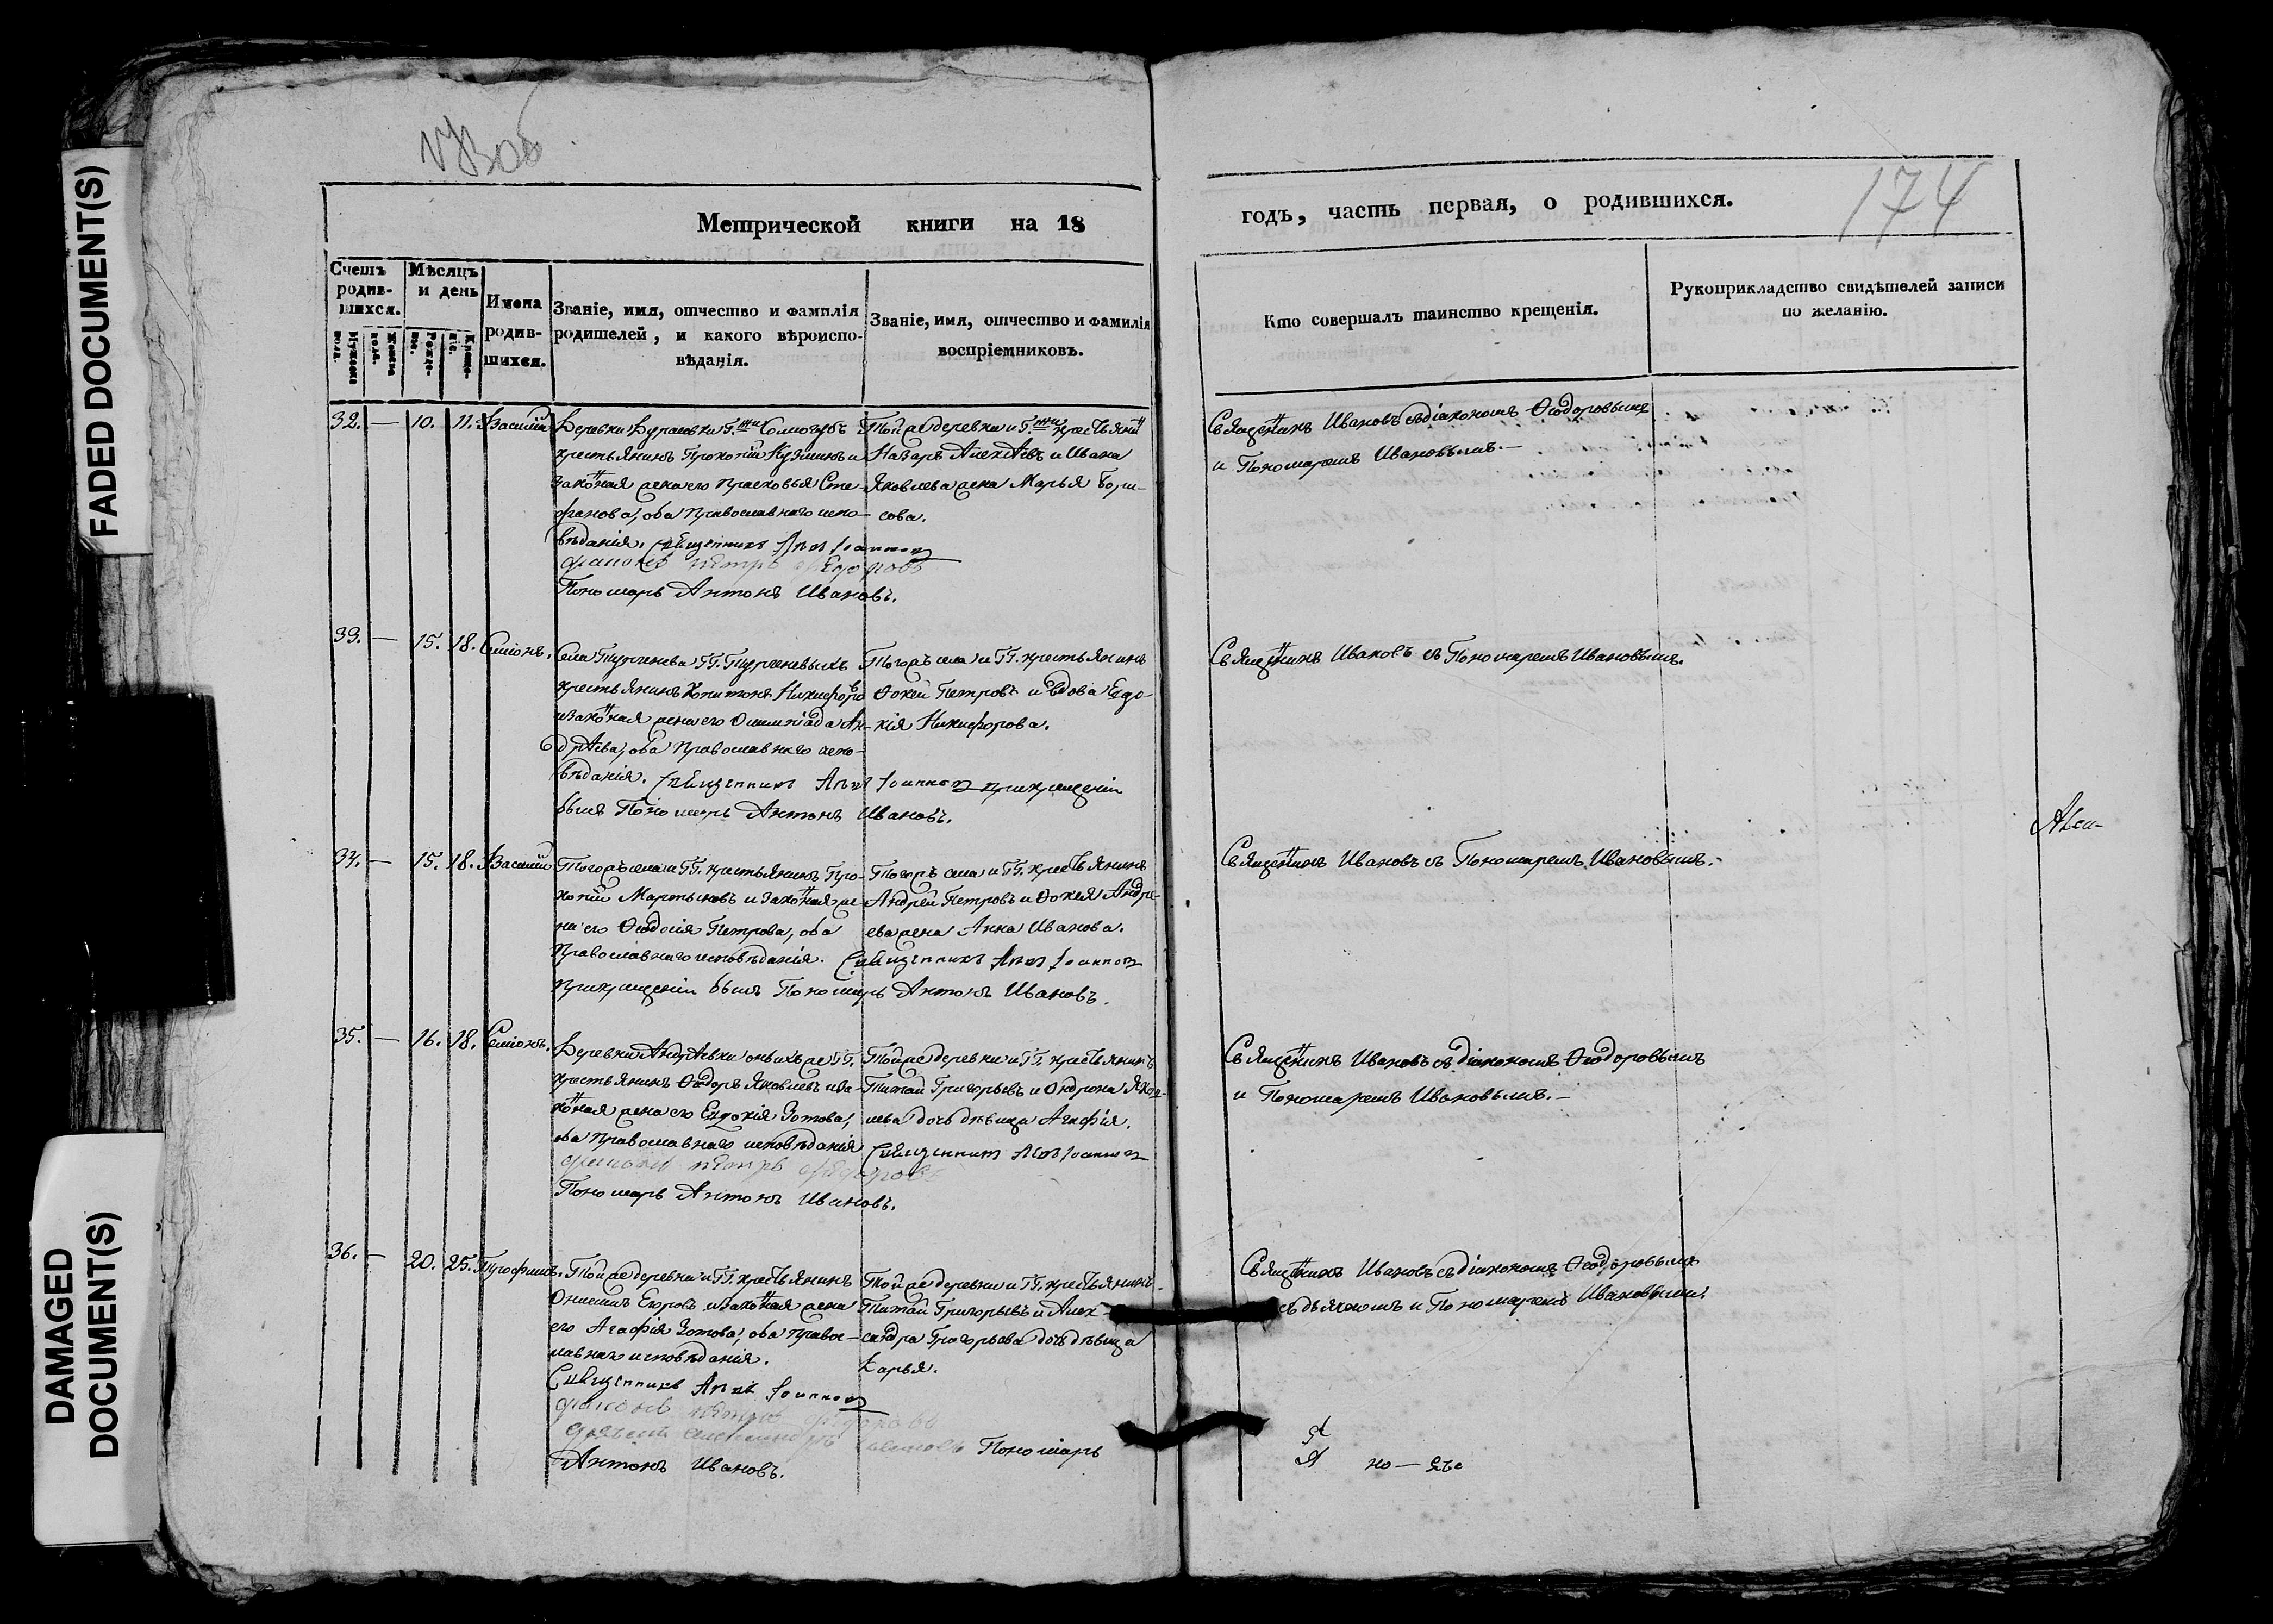 FADED DOCUMENT(S)
DAMAGED
DOCUMENT(S)
174
Метрической книги на 18
годъ, часть первая, о родившихся.
Счетъ родившихся.
Мужеска пола.
Женска пола.
Мѣсяцъ и день
Рожденія.
Крещенія.
Имена родившихся.
Званіе, имя, отчество и фамилія
родителей, и какого вѣроиспо-
вѣданія.
Званіе, имя, отчество и фамилія
воспріемниковъ.
Кто совершалъ таинство крещенія.
Рукоприкладство свидѣтелей записи
по желанію.
32. — 10. 11. Василій
Деревни Г.жи
крестьянинъ Прокопій Кузминъ и
законная жена его Прасковья Сте-
фанова, оба Православнаго испо-
вѣданія. Священникъ Іоанновъ
Діаконъ Петръ Федоровъ
Пономарь Антонъ Ивановъ.
Той же деревни и Г.жи крестьянинъ
Назаръ Алексѣевъ и Ивана
Яковлева жена Марья Бори-
сова.
Священникъ Ивановъ съ діакономъ Ѳеодоровымъ
и Пономаремъ Ивановымъ.—
33. — 15. 18. Симіонъ.
Села Тургенева ГГ. Тургеневыхъ
крестьянинъ Никифоровъ
и законная жена его Олимпіада Ан-
дрѣева, оба Православнаго испо-
вѣданія. Священникъ Іоанновъ при крещеніи
былъ Пономарь Антонъ Ивановъ.
Тогожъ села и ГГ. крестьянинъ
Ѳокей Петровъ и вдова Евдо-
кія Никифорова.
Священникъ Ивановъ съ Пономаремъ Ивановымъ.
34. — 15. 18. Василій
Тогожъ села и ГГ. крестьянинъ Про-
копій Мартыновъ и законная же-
на его Ѳеодосія Петрова, оба
Православнаго исповѣданія. Священникъ Іоанновъ
При крещеніи былъ Пономарь Антонъ Ивановъ.
Тогожъ села и ГГ. крестьянинъ
Андрей Петровъ и Ѳокея Андре-
ева жена Анна Иванова.
Священникъ Ивановъ съ Пономаремъ Ивановымъ.
35. — 16. 18. Симіонъ.
Деревни Андрѣевки оныхъ же ГГ.
крестьянинъ Ѳеодоръ Яковлевъ и за-
конная жена его Евдокія Зотова,
оба Православнаго исповѣданія
Діаконъ Петръ Федоровъ
Пономарь Антонъ Ивановъ.
Той же деревни и ГГ. крестьянинъ
Титъ Григорьевъ и Яков-
лева дочь дѣвица Агафія.
Священникъ Іоанновъ
Священникъ Ивановъ съ діакономъ Ѳеодоровымъ
и Пономаремъ Ивановымъ.—
36. — 20. 25. Трофимъ.
Той же деревни и ГГ. крестьянинъ
Онисимъ Егоровъ и законная жена
его Агафія Зотова, оба Правос-
лавнаго исповѣданія.
Священникъ Іоанновъ
Діаконъ Петръ Федоровъ
Пономарь
Антонъ Ивановъ.
Той же деревни и ГГ. крестьянинъ
Титъ Григорьевъ и Алек-
сандра Григорьева дочь дѣвица
Дарья.
Священникъ Ивановъ съ діакономъ Ѳеодоровымъ
съ дьячкомъ и Пономаремъ Ивановымъ.